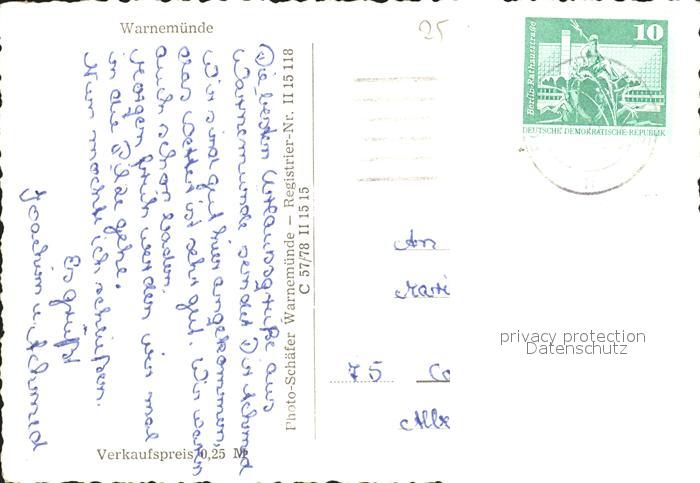 Warnemünde
25
Die lieben Urlaubsgrüße aus
Warnemünde sendet Dir
Wir sind gut hier angekommen,
das Wetter ist sehr gut. Wir waren
auch schon baden.
Morgen früh werden wir mal
in die Pilze gehe.
Nun möchte ich schließen.
Es grüßt
Joachim u.
Verkaufspreis 0,25 M
Photo-Schäfer Warnemünde – Registrier-Nr. II 15 118
C 57/78 II 15 15
10
Berlin-Rathausstraße
DEUTSCHE DEMOKRATISCHE REPUBLIK
An
Mari
75 Co
privacy protection
Datenschutz